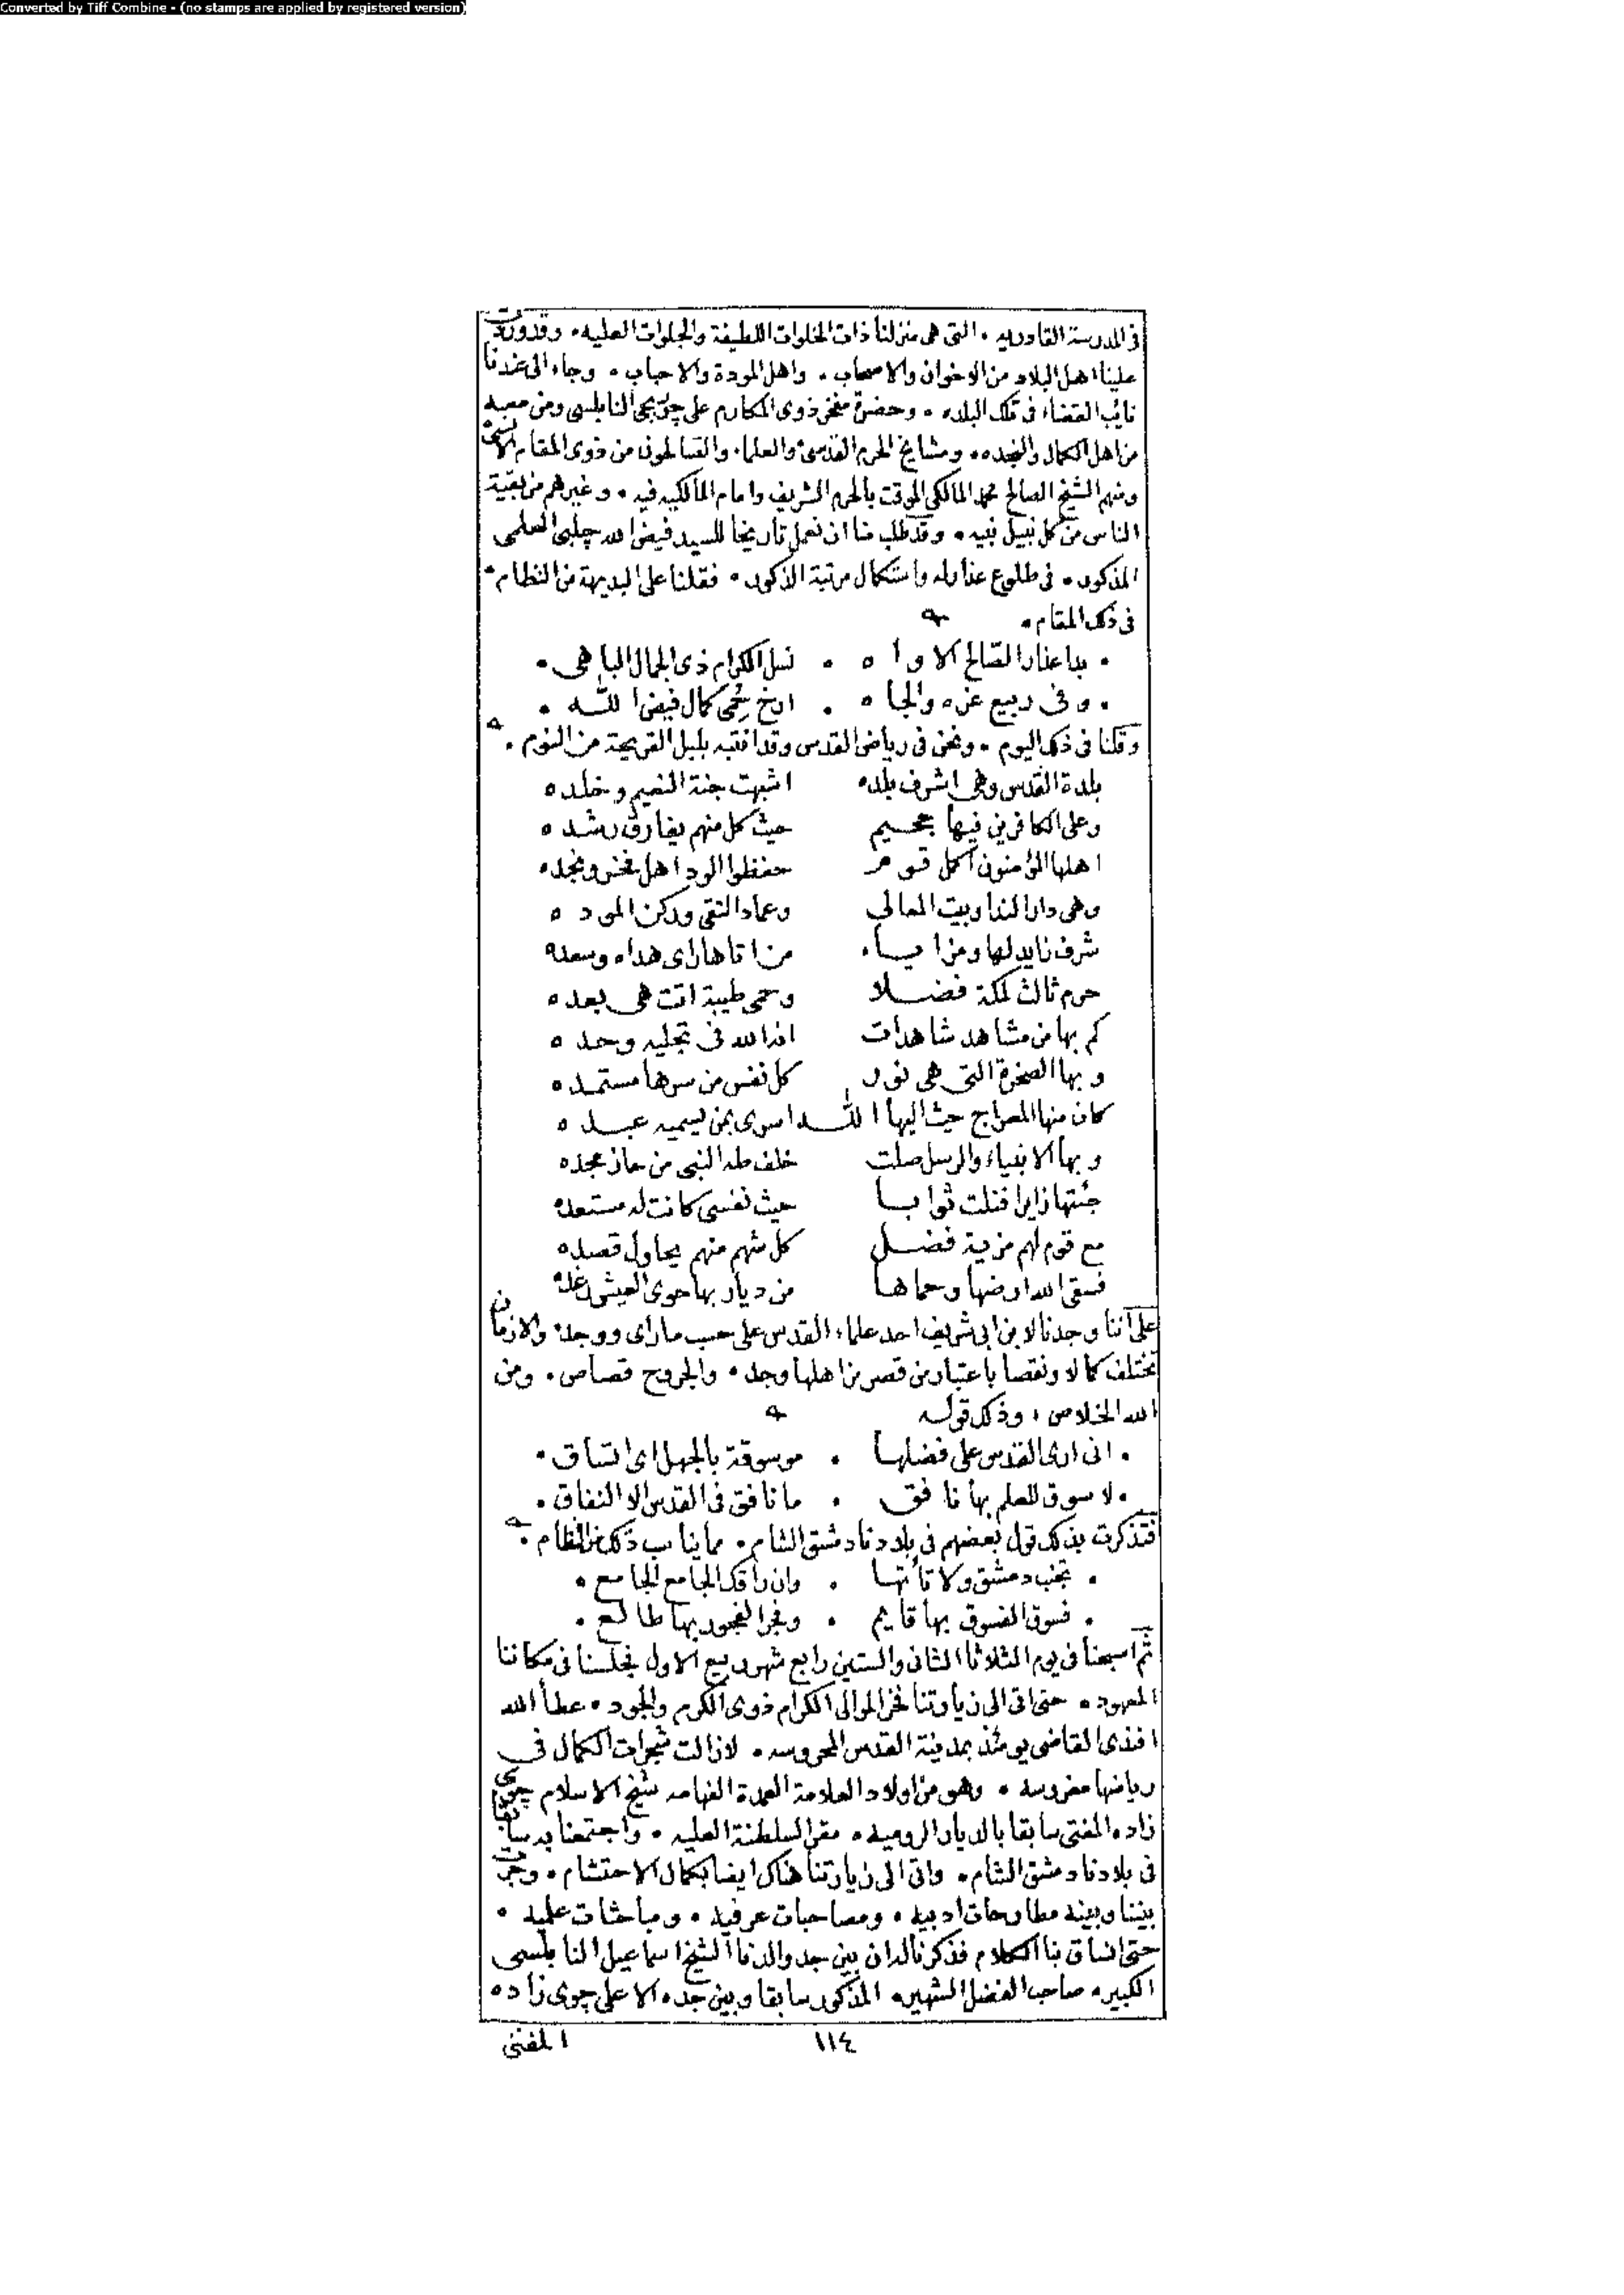 Converted by Tiff Combine - (no stamps are applied by registered version)
في المدرسة القادريه . التى هى منزلنا ذات الخلوات اللطيفة والجلوات العليه . وقد وردت
علينا اهل البلاد من الاخوان والاصحاب . واهل المودة والاحباب . وجاء الى عندنا
نائب القضاء فى تلك البلده . وحضرة مفخر ذوى المكارم على چوربجى النابلسى ومن معه
من اهل الكمال والنجده . ومشايخ الحرم القدسى والعلماء والصالحون من ذوى المقام الانسى
ومنهم الشيخ الصالح محمد المالكى الموقت بالحرم الشريف وامام المالكيه فيه . وغيرهم من بقية
الناس من كل نبيل نبيه . وقد طلب منا ان نعمل تاريخا للسيد فيض الله چلبى العلمى
المذكور . فى طلوع عذاره واستكمال مرتبة الذكور . فقلنا على البديهة من النظام .
فى ذلك المقام .
. بدا عذار الصالح الاواه . نسل الكرام ذى الجمال الباهى .
. وفى ربيع عزه والجاه . ارخ كمال فيض الله .
وقلنا فى ذلك اليوم . ونحن فى رياض القدس وقد انتبه بلبل القريحة من النوم .
بلدة القدس وهى اشرف بلده اشبهت جنة النعيم وخلده
وعلى الكافرين فيها جحيم حيث كل منهم يفارق رشده
اهلها المؤمنون اكمل قوم حفظوا الود اهل فخر ونجده
وهى دار الندا وبيت المعالى وعماد التقى وركن الموده
شرف زايد لها ومزايا من اتاها راى هداه وسعده
حرم ثالث لمكة فضلا وحمى طيبة اتت هى بعده
كم بها من مشاهد شاهدات ان الله فى تجليه وحده
وبها الصخرة التى هى نور كل نفس من سرها مستمده
كان منها المعراج حيث اليها الله اسرى بمن يسميه عبده
وبها الانبياء والرسل صلت خلف طه النبى من حاز مجده
جئتها زايرا فنلت ثوابا حيث نفسى كانت له مستعده
مع قوم لهم مزية فضل كل شهم منهم يحاول قصده
فسقى الله ارضها وحماها من ديار بها حوى العيش رغده
على اننا وجدنا لابن ابى شريف احد علماء القدس على حسب ما راى ووجده والازمان
تختلف كمالا ونقصا باعتبار من قصر من اهلها وجد . والجروح قصاص . ومن
الله الخلاص ، وذلك قوله
. انى ارى القدس على فضلها . موسوقة بالجهل اى اتساق .
. لا سوق للعلم بها نافق . ما نافق فى القدس الا النفاق .
فتذكرت بذلك قول بعضهم فى بلادنا دمشق الشام . مما يناسب ذلك من النظام .
. تجنب دمشق ولا تأتها . وان راقك الجامع الجامع .
. فسوق الفسوق بها قايم . وفجر الفجور بها طالع .
ثم اصبحنا فى يوم الثلاثا الثانى والستين رابع شهر ربيع الاول فجلسنا فى مكاننا
المعهود . حتى اتى الى زيارتنا فخر الموالى الكرام ذوى الكرم والجود . عطا الله
افندى القاضى يومئذ بمدينة القدس المحروسه . لازالت شجرات الكمال فى
رياضها مغروسه . وهو من اولاد العلامة العمدة الفهامه شيخ الاسلام چوى
زاده المفتى سابقا بالديار الروميه . مقر السلطنة العليه . واجتمعنا به سابقا
فى بلادنا دمشق الشام . واتى الى زيارتنا هناك ايضا بكمال الاحتشام . وجرت
بيننا وبينه مطارحات ادبيه . ومصاحبات عرفيه . ومباحثات علميه .
حتى انساق بنا الكلام فذكرنا له ان بين جد والدنا الشيخ اسماعيل النابلسى
الكبير . صاحب الفضل الشهير . المذكور سابقا وبين جده الاعلى چوى زاده
١١٤ المفتى